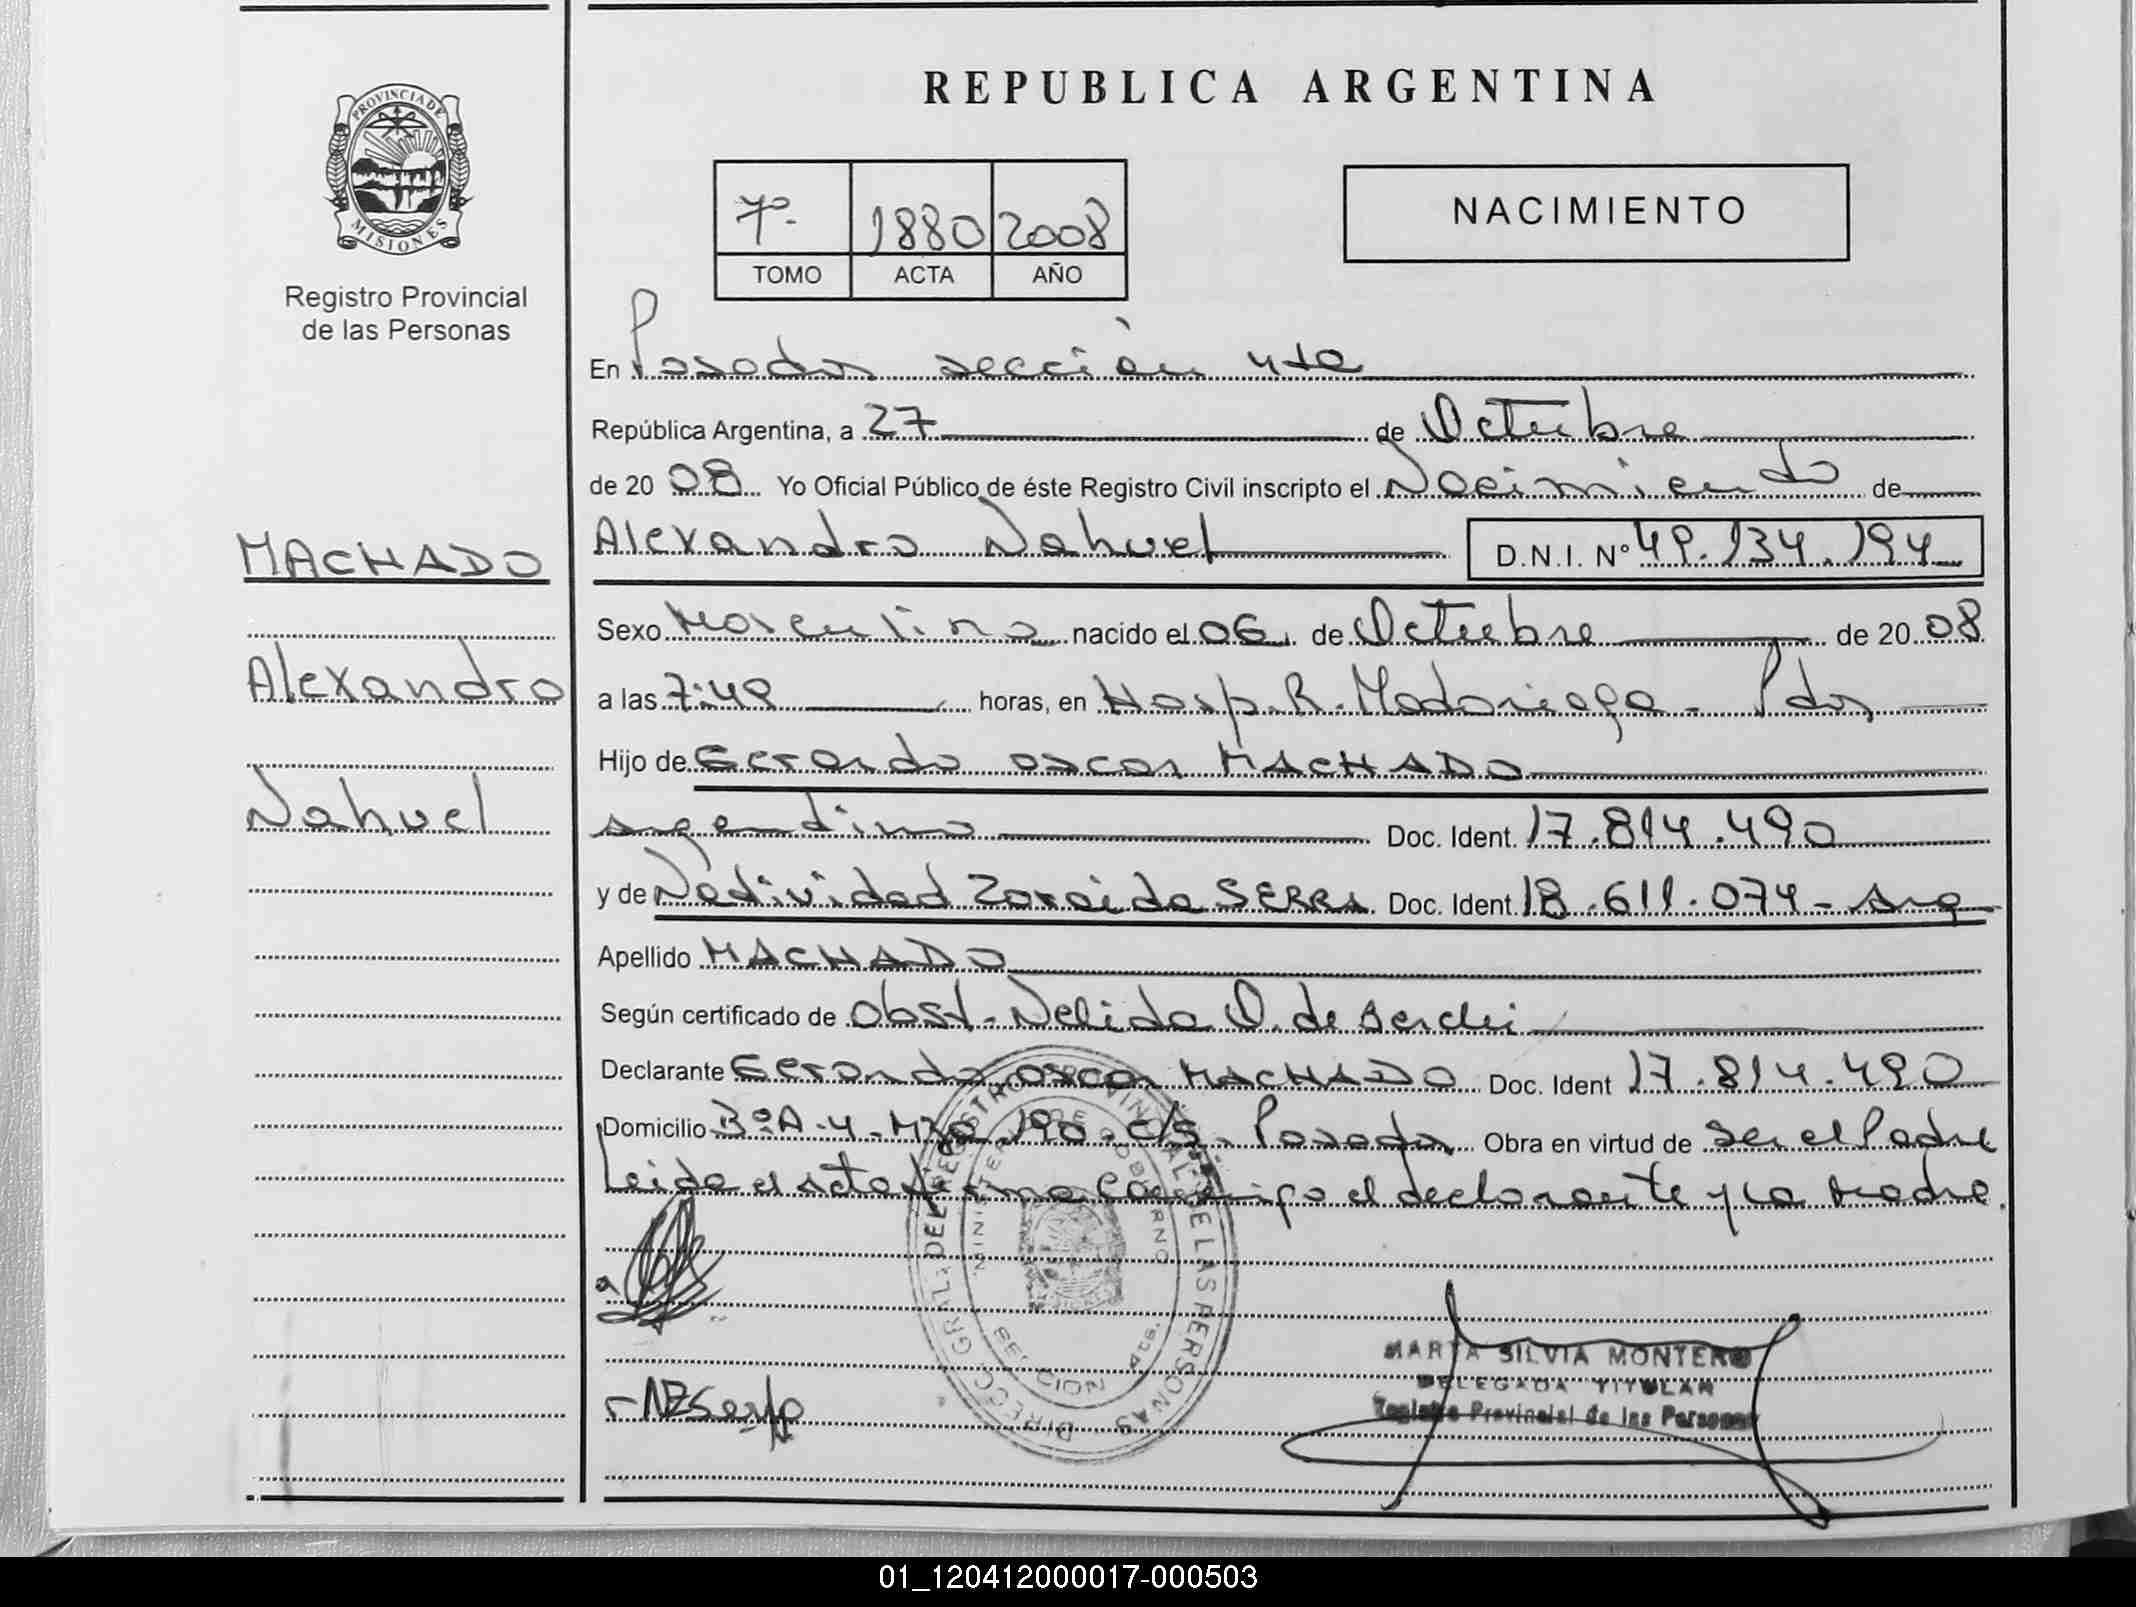 REPUBLICA ARGENTINA
PROVINCIA DE MISIONES
Registro Provincial
de las Personas
7º- 1880 2008
TOMO ACTA AÑO
NACIMIENTO
En Posadas sección 4ta
República Argentina, a 27 de Octubre
de 20 08 Yo Oficial Público de éste Registro Civil inscripto el Nacimiento de
MACHADO
Alexandro Nahuel D.N.I. Nº 49.134.194
Sexo Masculino nacido el 06 de Octubre de 20 08
Alexandro
a las 7:49 horas, en Hosp. R. Madariaga - Pdas
Hijo de Gerardo Oscar MACHADO
Nahuel
argentino Doc. Ident. 17.814.490
y de Natividad Zoraida SERRA Doc. Ident. 18.611.074 - Arg
Apellido MACHADO
Según certificado de Obst. Nelida O. de
Declarante Gerardo Oscar MACHADO Doc. Ident 17.814.490
Domicilio Bº A-4 - Mza 190 - c/5 - Posadas Obra en virtud de ser el Padre
Leida el acta firma conmigo el declarante y la madre.
DIRECC. GRAL. DEL REGISTRO PROVINCIAL DE LAS PERSONAS
MINISTERIO DE GOBIERNO
MARTA SILVIA MONTERO
DELEGADA TITULAR
Registro Provincial de las Personas
01_120412000017-000503